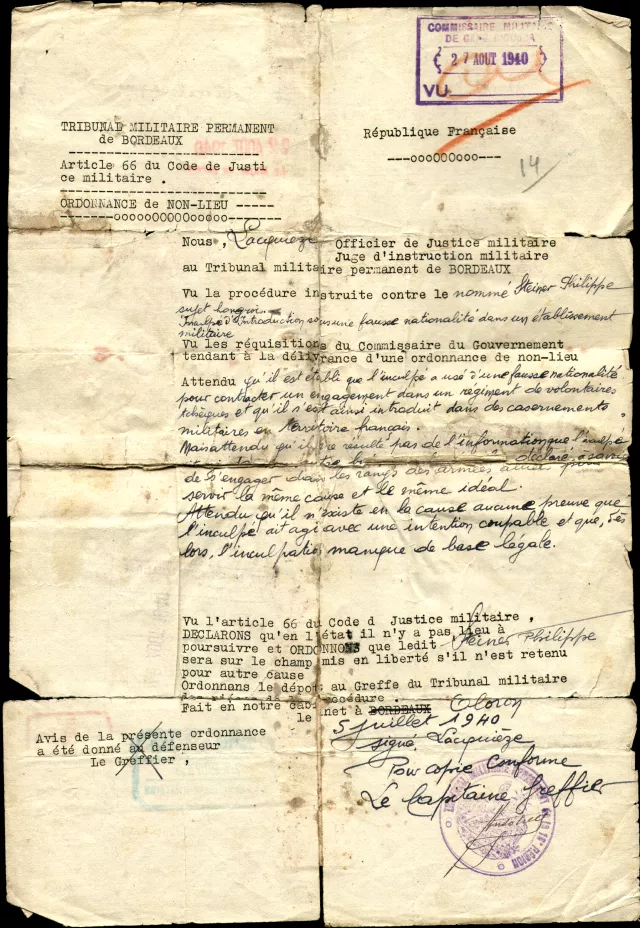 COMMISSAIRE MILITAIRE
27 AOUT 1940
VU
TRIBUNAL MILITAIRE PERMANENT
de BORDEAUX
Article 66 du Code de Justi
ce militaire .
ORDONNANCE de NON-LIEU
------ooooo00000ooooo------
République Française
---ooo000ooo---
14
Nous, Lacquièze Officier de Justice militaire
Juge d'instruction militaire
au Tribunal militaire permanent de BORDEAUX
Vu la procédure instruite contre le nommé Steiner Philippe
sujet hongrois
Inculpé d'Introduction sous une fausse nationalité dans un établissement
militaire
Vu les réquisitions du Commissaire du Gouvernement
tendant à la délivrance d'une ordonnance de non-lieu
Attendu qu'il est établi que l'inculpé a usé d'une fausse nationalité
pour contracter un engagement dans un régiment de volontaires
tchèques et qu'il s'est ainsi introduit dans des casernements
militaires en territoire français.
Mais attendu qu'il ne résulte pas de l'information que l'inculpé
déclare
de s'engager dans les rangs des armées alliées pour
servir la même cause et le même idéal.
Attendu qu'il n'existe en la cause aucune preuve que
l'inculpé ait agi avec une intention coupable et que, dès
lors, l'inculpation manque de base légale.
Vu l'article 66 du Code d Justice militaire ,
DECLARONS qu'en l'état il n'y a pas lieu à
poursuivre et ORDONNONS que ledit Steiner Philippe
sera sur le champ mis en liberté s'il n'est retenu
pour autre cause
Ordonnons le dépôt au Greffe du Tribunal militaire
procédure .
Fait en notre cabinet à BORDEAUX Oloron
le 5 juillet 1940
signé Lacquièze
Pour copie conforme
Le Capitaine Greffier
Avis de la présente ordonnance
a été donné au défenseur
Le Greffier ,